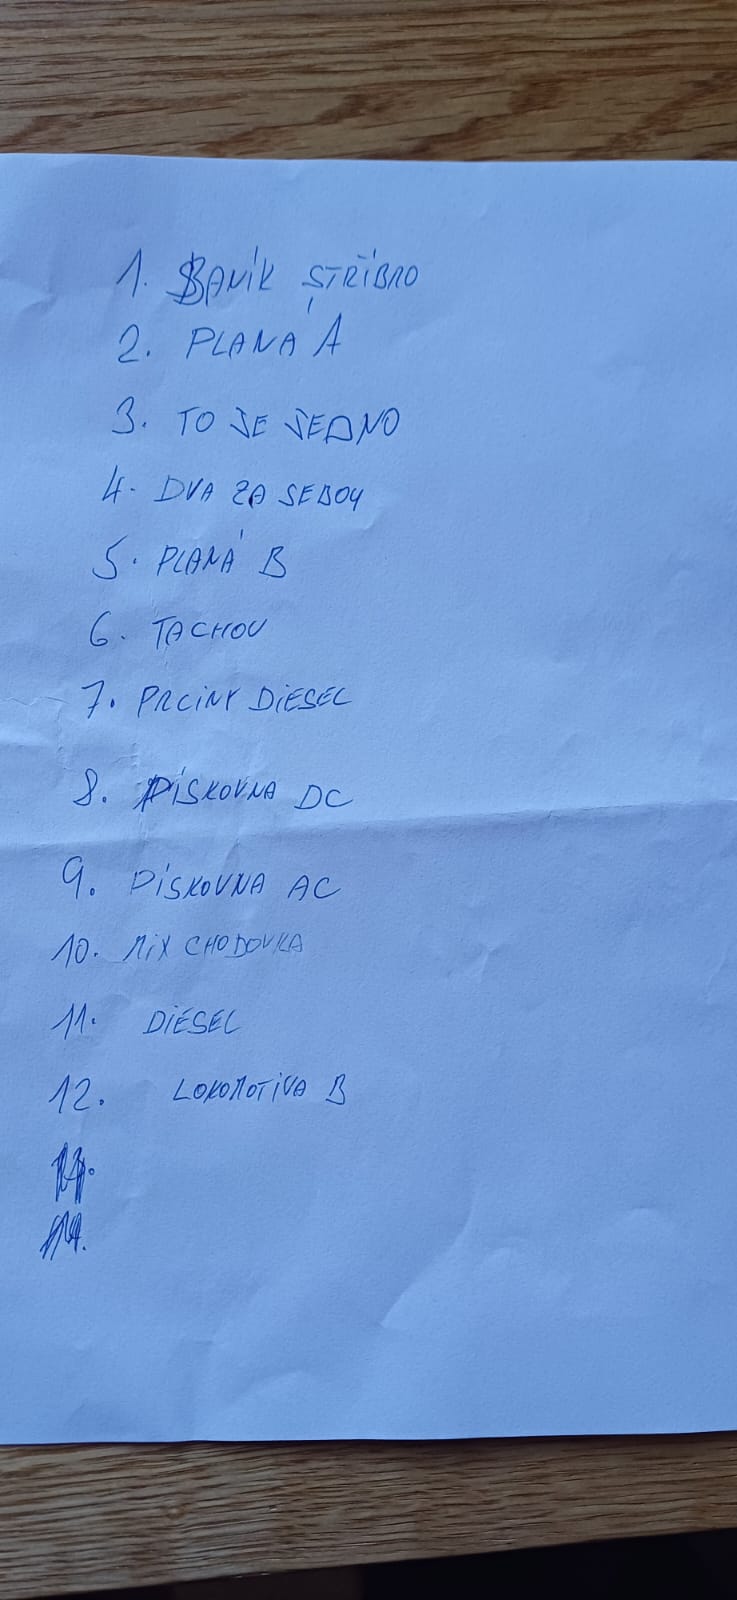 1. BANÍK STŘÍBRO
2. PLANÁ A
3. TO JE JEDNO
4. DVA ZA SEBOU
5. PLANÁ B
6. TACHOV
7. PRCINY DIESEL
8. PÍSKOVNA DC
9. PÍSKOVNA AC
10. MIX CHODOVKA
11. DIESEL
12. LOKOMOTIVA B